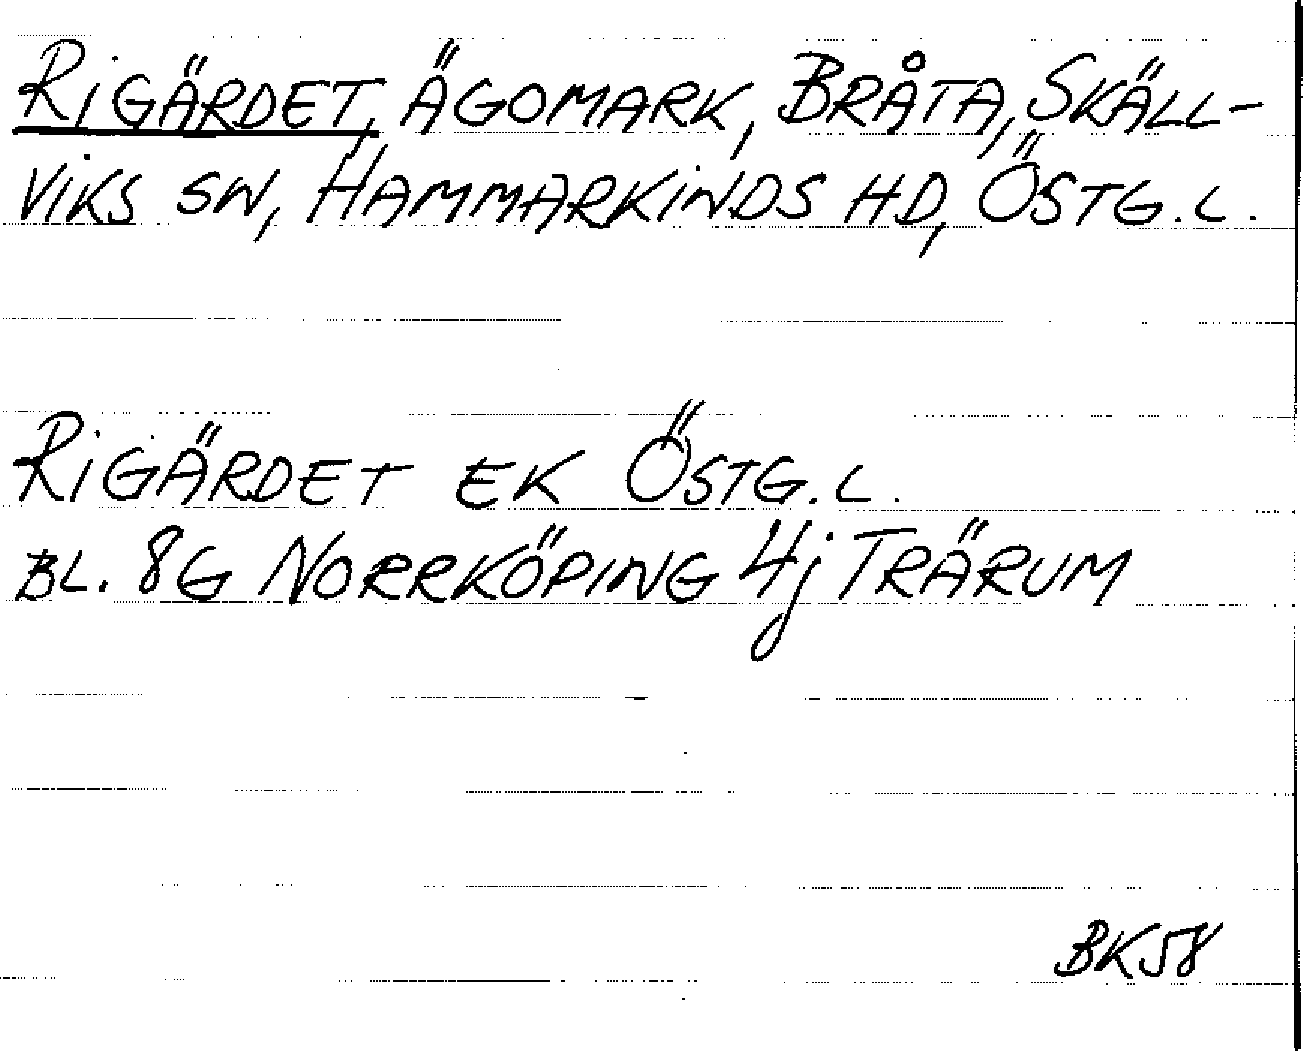 RIGÄRDET, ÄGOMARK, BRÅTA, SKÄLL-
VIKS SN, HAMMARKINDS HD, ÖSTG.L.
RIGÄRDET EK ÖSTG.L.
BL. 8G NORRKÖPING 4j TRÄRUM
BK58